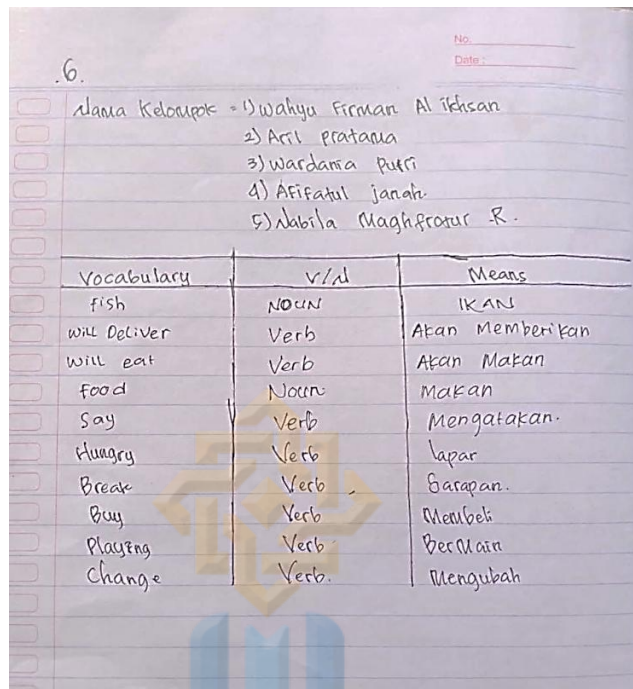 No.
Date :
.6.
Nama Kelompok = 1) Wahyu Firman Al ikhsan
2) Aril pratama
3) Wardania Putri
4) Afifatul janah.
5) Nabila Maghfrotur .R.
Vocabulary V/N Means
fish NOUN IKAN
Will Deliver Verb Akan Memberikan
Will eat Verb Akan Makan
Food Noun Makan
Say Verb Mengatakan.
Hungry Verb lapar
Break Verb Sarapan.
Buy Verb Membeli
Playing Verb BerMain
Change Verb. Mengubah